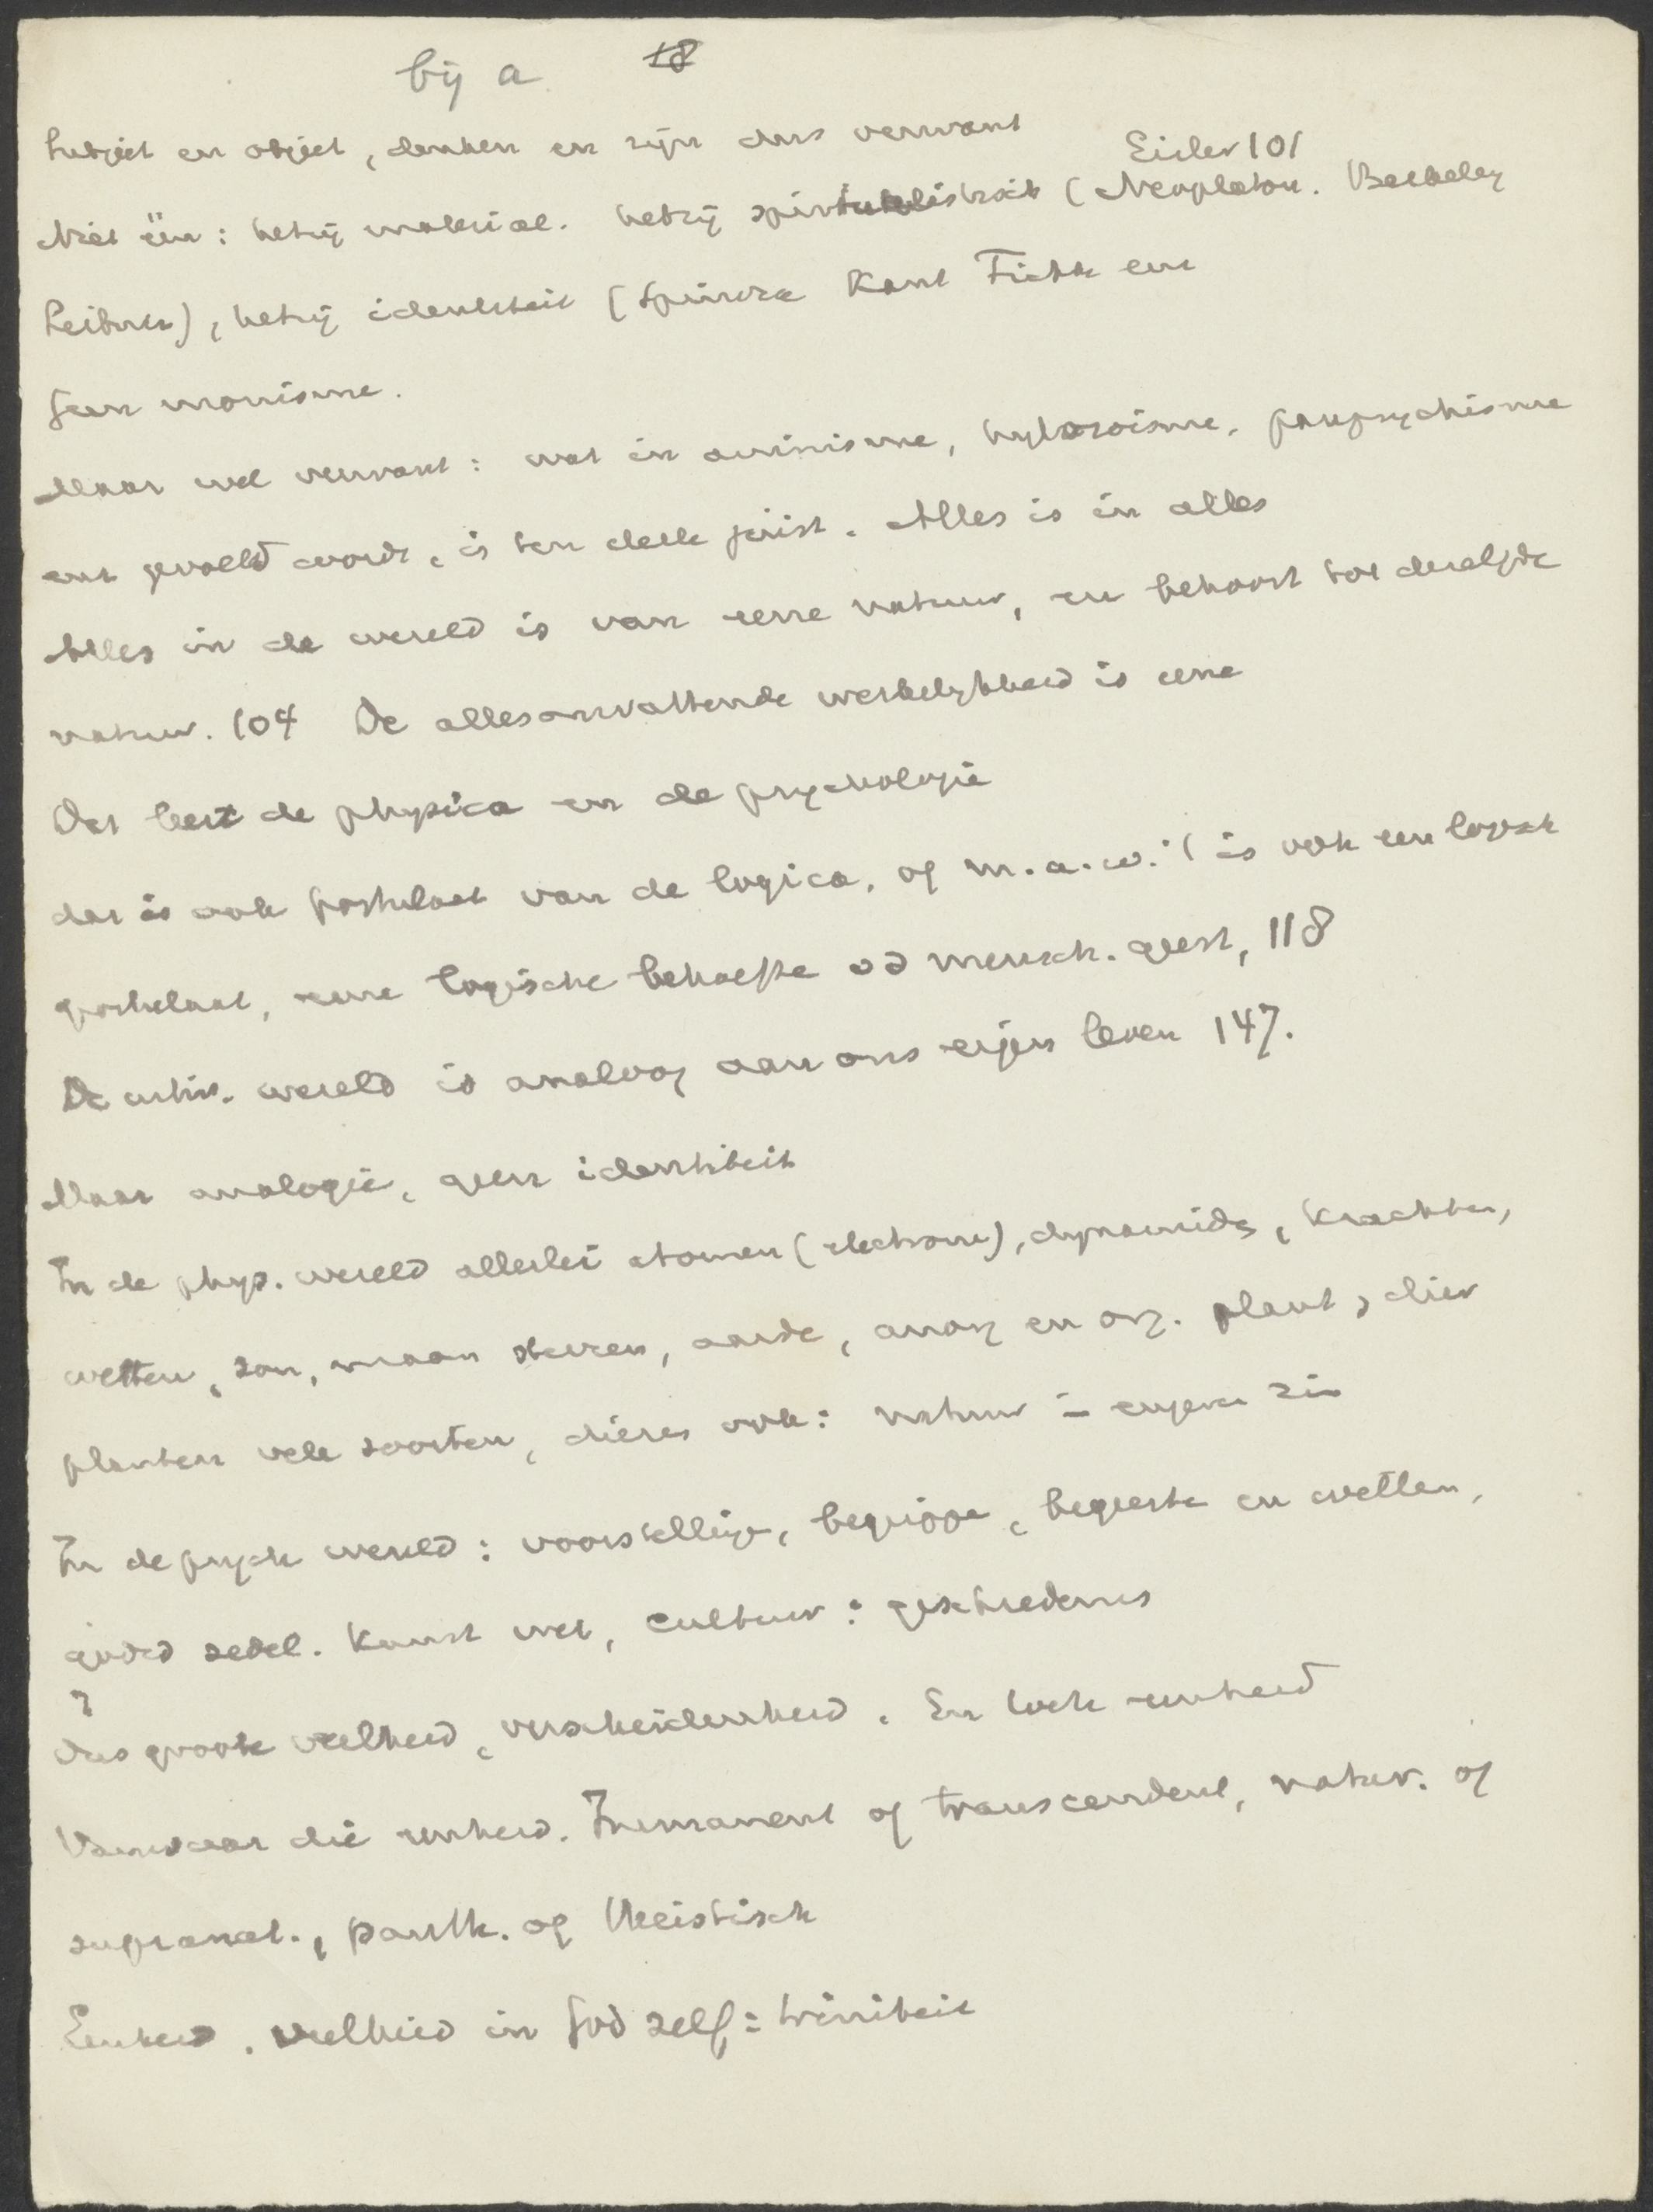 bij a 18
Subject en object, denken en zijn dus verwant
Eisler 101
Niet één: hetzij material. hetzij spiritualistisch (Neoplaton. Berkeley
Leibniz), hetzij identiteit (Spinoza Kant Fichte enz
Geen monisme.
Maar wel verwant: wat in animisme, hylozoisme, panpsychisme
enz gevoeld wordt, is ten deele juist. Alles is in alles
Alles in de wereld is van eene natuur, en behoort tot dezelfde
natuur. 104 De allesomvattende werkelijkheid is eene
Dat leert de physica en de psychologie
dat is ook postulaat van de logica, of m.a.w. is ook een logisch
postulaat, eene logische behoefte vd mensch. geest, 118
De wereld is analoog aan ons eigen leven 147.
Maar analogie, geen identiteit
In de phys. wereld allerlei atomen (electronen), dynamides, krachten,
wetten, zon, maan sterren, aarde, anorg en org. plant, dier
planten vele soorten, dieren ook: natuur in engeren zin
In de psych wereld: voorstellingen, begrippen, begeerten en wetten,
godsd zedel. kunst wet, cultuur: geschiedenis
Dus groote veelheid, verscheidenheid. En toch eenheid
Vanwaar die eenheid. Immanent of transcendent, natur. of
supranat., panth. of theistisch
Eenheid. veelheid in God zelf: triniteit